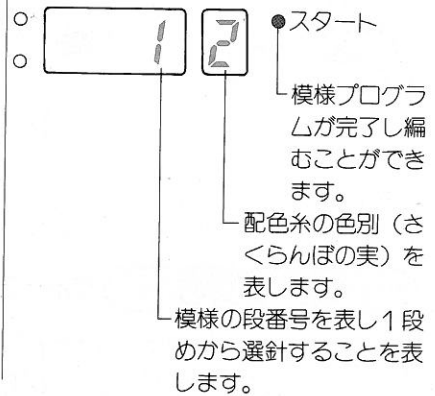 1 2 ●スタート
模様プログラ
ムが完了し編
むことができ
ます。
配色糸の色別（さ
くらんぼの実）を
表します。
模様の段番号を表し1段
めから選針することを表
します。